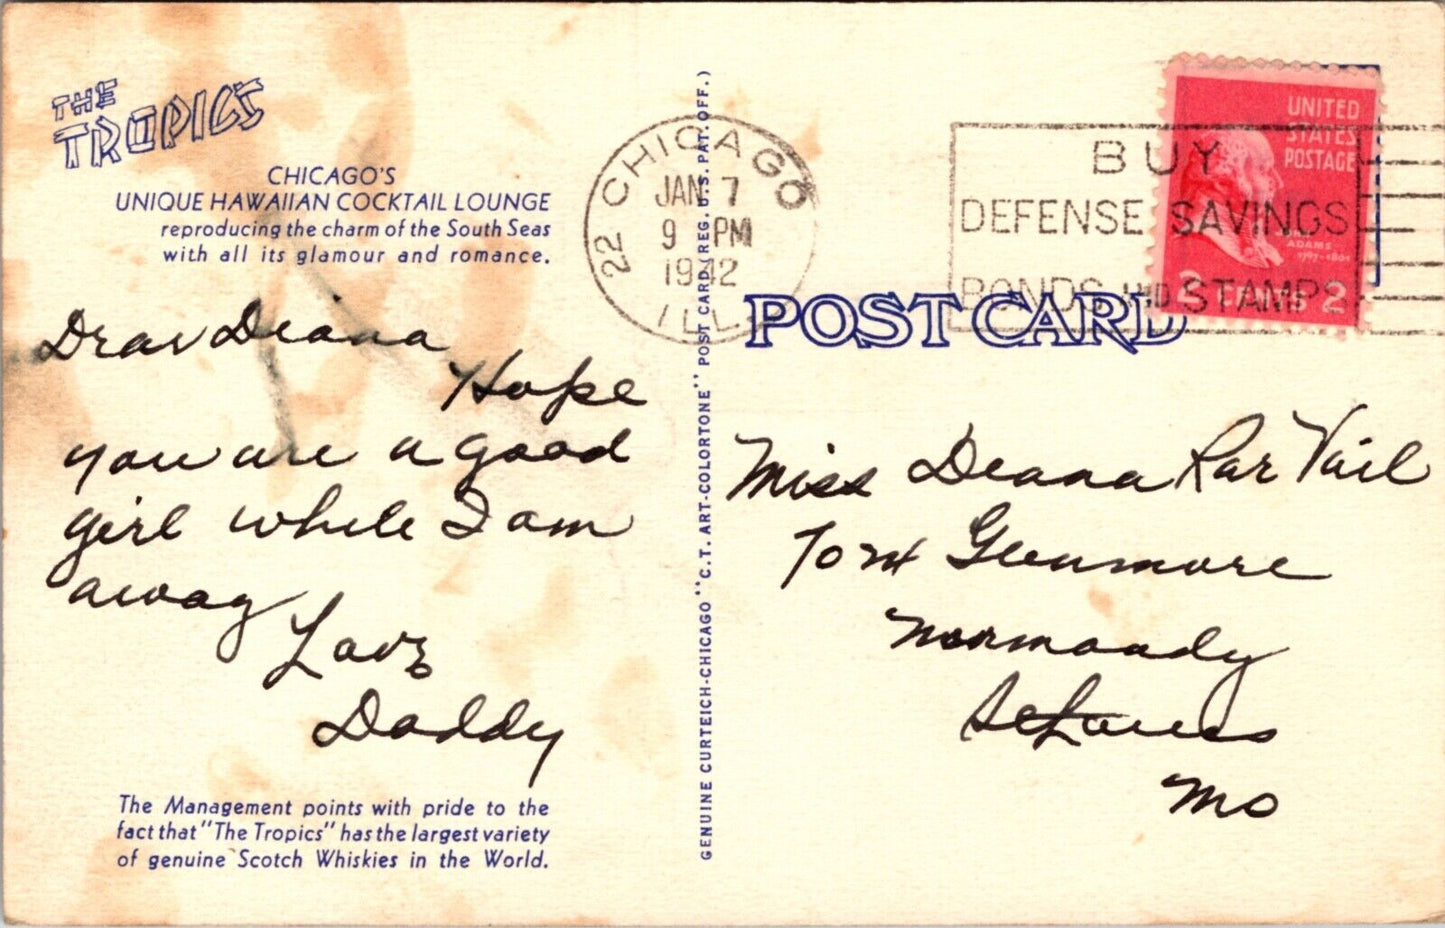 THE
TROPICS
CHICAGO'S
UNIQUE HAWAIIAN COCKTAIL LOUNGE
reproducing the charm of the South Seas
with all its glamour and romance.
Dear Deana
Hope
you are a good
girl while I am
away
Love
Daddy
The Management points with pride to the
fact that "The Tropics" has the largest variety
of genuine Scotch Whiskies in the World.
GENUINE CURTEICH-CHICAGO "C.T. ART-COLORTONE" POST CARD (REG. U.S. PAT. OFF.)
22 CHICAGO
JAN 7
9 PM
1942
ILL
BUY
DEFENSE SAVINGS
BONDS AND STAMPS
UNITED
STATES
POSTAGE
ADAMS
1797-1801
2 CENTS 2
POST CARD
Miss Deana Vail
Glenmore
Normandy
St Louis
Mo